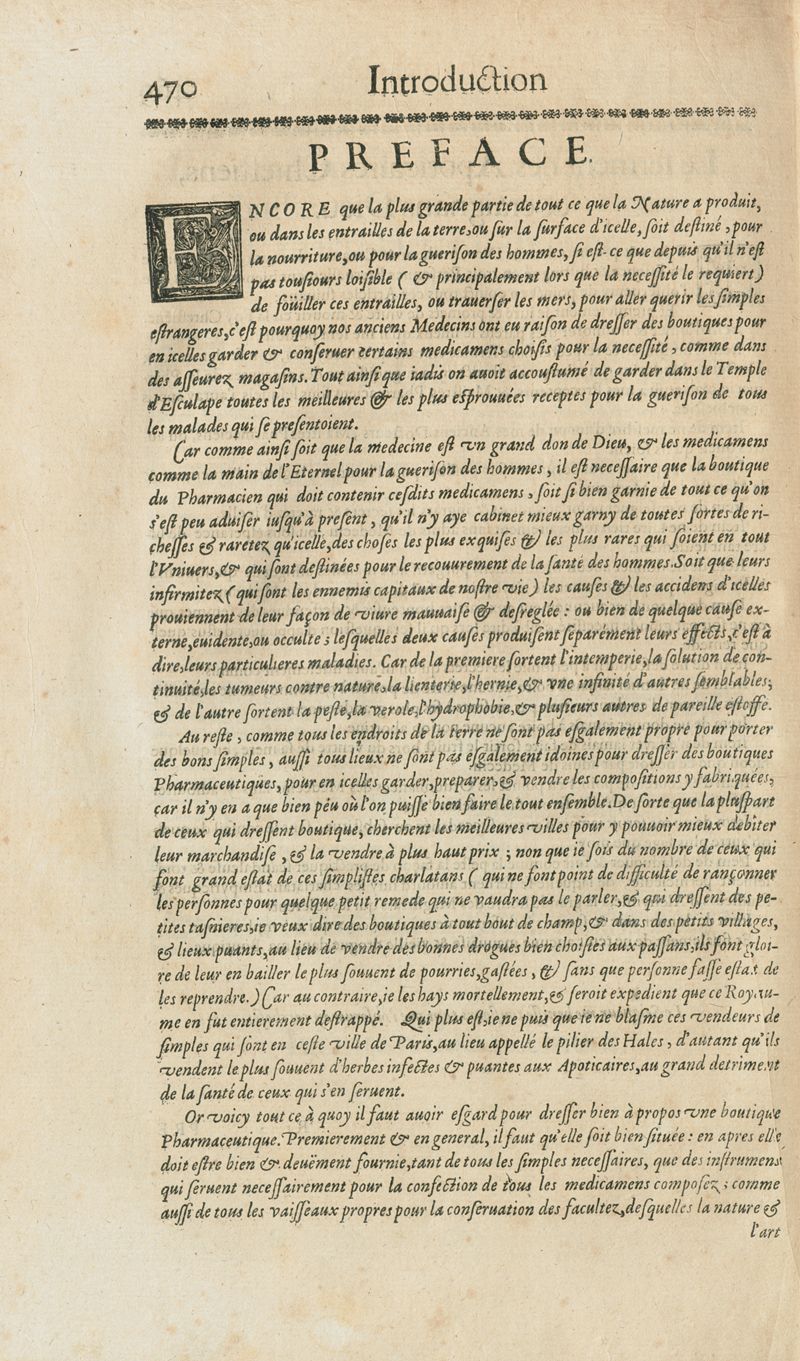 470 Introduction
PREFACE.
ENCORE que la plus grande partie de tout ce que la Nature a produit,
ou dans les entrailles de la terre, ou ſur la ſurface d'icelle, ſoit deſtiné, pour
la nourriture, ou pour la gueriſon des hommes, ſi eſt-ce que depuis qu'il n'eſt
pas touſiours loiſible ( & principalement lors que la neceſſité le requiert )
de foüiller ces entrailles, ou trauerſer les mers, pour aller querir les ſimples
eſtrangeres, c'eſt pourquoy nos anciens Medecins ont eu raiſon de dreſſer des boutiques pour
en icelles garder & conſeruer certains medicamens choiſis pour la neceſſité, comme dans
des aſſeurez magaſins. Tout ainſi que iadis on auoit accouſtumé de garder dans le Temple
d'Eſculape toutes les meilleures & les plus eſprouuées receptes pour la gueriſon de tous
les malades qui ſe preſentoient.
Car comme ainſi ſoit que la medecine eſt vn grand don de Dieu, & les medicamens
comme la main de l'Eternel pour la gueriſon des hommes, il eſt neceſſaire que la boutique
du Pharmacien qui doit contenir ceſdits medicamens, ſoit ſi bien garnie de tout ce qu'on
s'eſt peu aduiſer iuſqu'à preſent, qu'il n'y aye cabinet mieux garny de toutes ſortes de ri-
cheſſes & raretez qu'icelle, des choſes les plus exquiſes & les plus rares qui ſoient en tout
l'Vniuers, & qui ſont deſtinées pour le recouurement de la ſanté des hommes. Soit que leurs
infirmitez ( qui ſont les ennemis capitaux de noſtre vie ) les cauſes & les accidens d'icelles
prouiennent de leur façon de viure mauuaiſe & deſreglée : ou bien de quelque cauſe ex-
terne, euidente, ou occulte ; leſquelles deux cauſes produiſent ſeparément leurs effects, c'eſt à
dire, leurs particulieres maladies. Car de la premiere ſortent l'intemperie, la ſolution de con-
tinuité, les tumeurs contre nature, la lienterie, l'hernie, & vne infinité d'autres ſemblables;
& de l'autre ſortent la peſte, la verole, l'hydrophobie, & pluſieurs autres de pareille eſtoffe.
Au reſte, comme tous les endroits de la terre ne ſont pas eſgalement propre pour porter
des bons ſimples, auſſi tous lieux ne ſont pas eſgalement idoines pour dreſſer des boutiques
Pharmaceutiques, pour en icelles garder, preparer, & vendre les compoſitions y fabriquées,
car il n'y en a que bien péu où l'on puiſſe bien faire le tout enſemble. De ſorte que la pluſpart
de ceux qui dreſſent boutique, cherchent les meilleures villes pour y pouuoir mieux debiter
leur marchandiſe, & la vendre à plus haut prix ; non que ie ſois du nombre de ceux qui
font grand eſtat de ces ſimpliſtes charlatans ( qui ne font point de difficulté de rançonner
les perſonnes pour quelque petit remede qui ne vaudra pas le parler, & qui dreſſent des pe-
tites taſnieres, ie veux dire des boutiques à tout bout de champ, & dans des petits villages,
& lieux puants, au lieu de vendre des bonnes drogues bien choiſies aux paſſans, ils font gloi-
re de leur en bailler le plus ſouuent de pourries, gaſtées, & ſans que perſonne faſſe eſtat de
les reprendre. ) Car au contraire, ie les hays mortellement, & ſeroit expedient que ce Royau-
me en fut entierement deſtrappé. Qui plus eſt, ie ne puis que ie ne blaſme ces vendeurs de
ſimples qui ſont en ceſte ville de Paris, au lieu appellé le pilier des Hales, d'autant qu'ils
vendent le plus ſouuent d'herbes infectes & puantes aux Apoticaires, au grand detriment
de la ſanté de ceux qui s'en ſeruent.
Or voicy tout ce à quoy il faut auoir eſgard pour dreſſer bien à propos vne boutique
Pharmaceutique. Premierement & en general, il faut qu'elle ſoit bien ſituée : en apres elle
doit eſtre bien & deuëment fournie, tant de tous les ſimples neceſſaires, que des inſtrumens
qui ſeruent neceſſairement pour la confection de tous les medicamens compoſez ; comme
auſſi de tous les vaiſſeaux propres pour la conſeruation des facultez, deſquelles la nature &
l'art